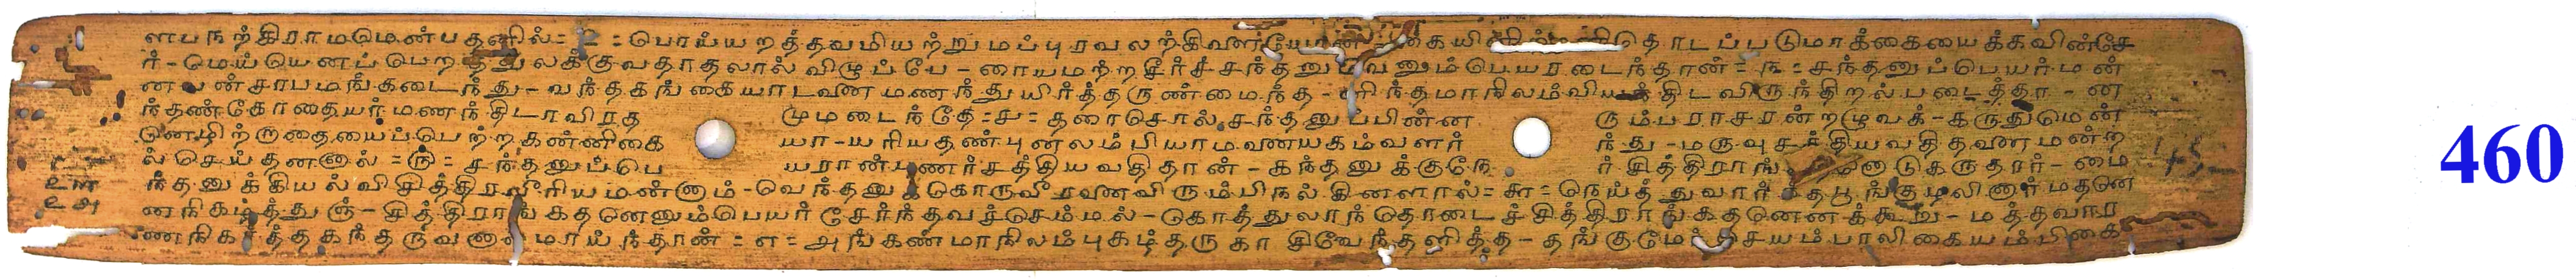 ளபநற்கிராமமென்பதனில்=உ=பொய்யறத்தவமியற்றுமப்புரவலற்கிவண தொடப்படுமாக்கையைக்கவின்சே
ர்-மெய்யெனப்பெற லக்குவதாதலால்விழுப்பே-ராயமற்றசீர்ச்சந்தனுவெனும்பெயரடைந்தான்=௩=சந்தனுப்பெயர்மன்
னவன்சாபமங்கடைந்து-வந்தகங்கையாடவண மணந்துயிர்த்தருண்மைந்த- ந்தமாநிலம்விய திடவிருந்திறல்படைத்தா-ன
ந்தண்கோதையர்மணந்திடாவிரத முமடைந்தே=௪=தரைசொல்சந்தனுப்பின்ன ரும்பராசரன்றழுவக்-கருதுமென்
னெழிற்றதையைப்பெற்றகன்னிகை யா-யரியதண்புனலம்பியாமவணயகம்வளர் ந்து-மருவுசத்தியவதிதவணமன்ற
ல்செய்தனனால்=௫=சந்தனுப்பெ யரான்புணர்சத்தியவதிதான்-கந்தனுக்குநே ர்சித்திராங் னொடுகருதார்-மை
ந்தனுக்கியல்விசித்திரவீரியமன்னாம்-வெந்தனு கொருவீரவணவிரும்பிநல்கினளால்=௬=நெய்த்துவார்ந்தபூங்குழலினார்மதனெ
னநிகழ்த்துஞ்-சித்திராங்கதனெனும்பெயர்சேர்ந்தவச்செம்மல்-கொத்துலாந்தொடைச்சித்திராங்கதனெனக்கூறு-மத்தவார
ணநிகர்த்தகந்தருவனால்மாய்ந்தான்=௭=அங்கண்மாநிலம்புகழ்தருகா சிவேந்தளித்த-தங்குமே சயம்பாலிகையம்பிகை
உள
உஅ
460